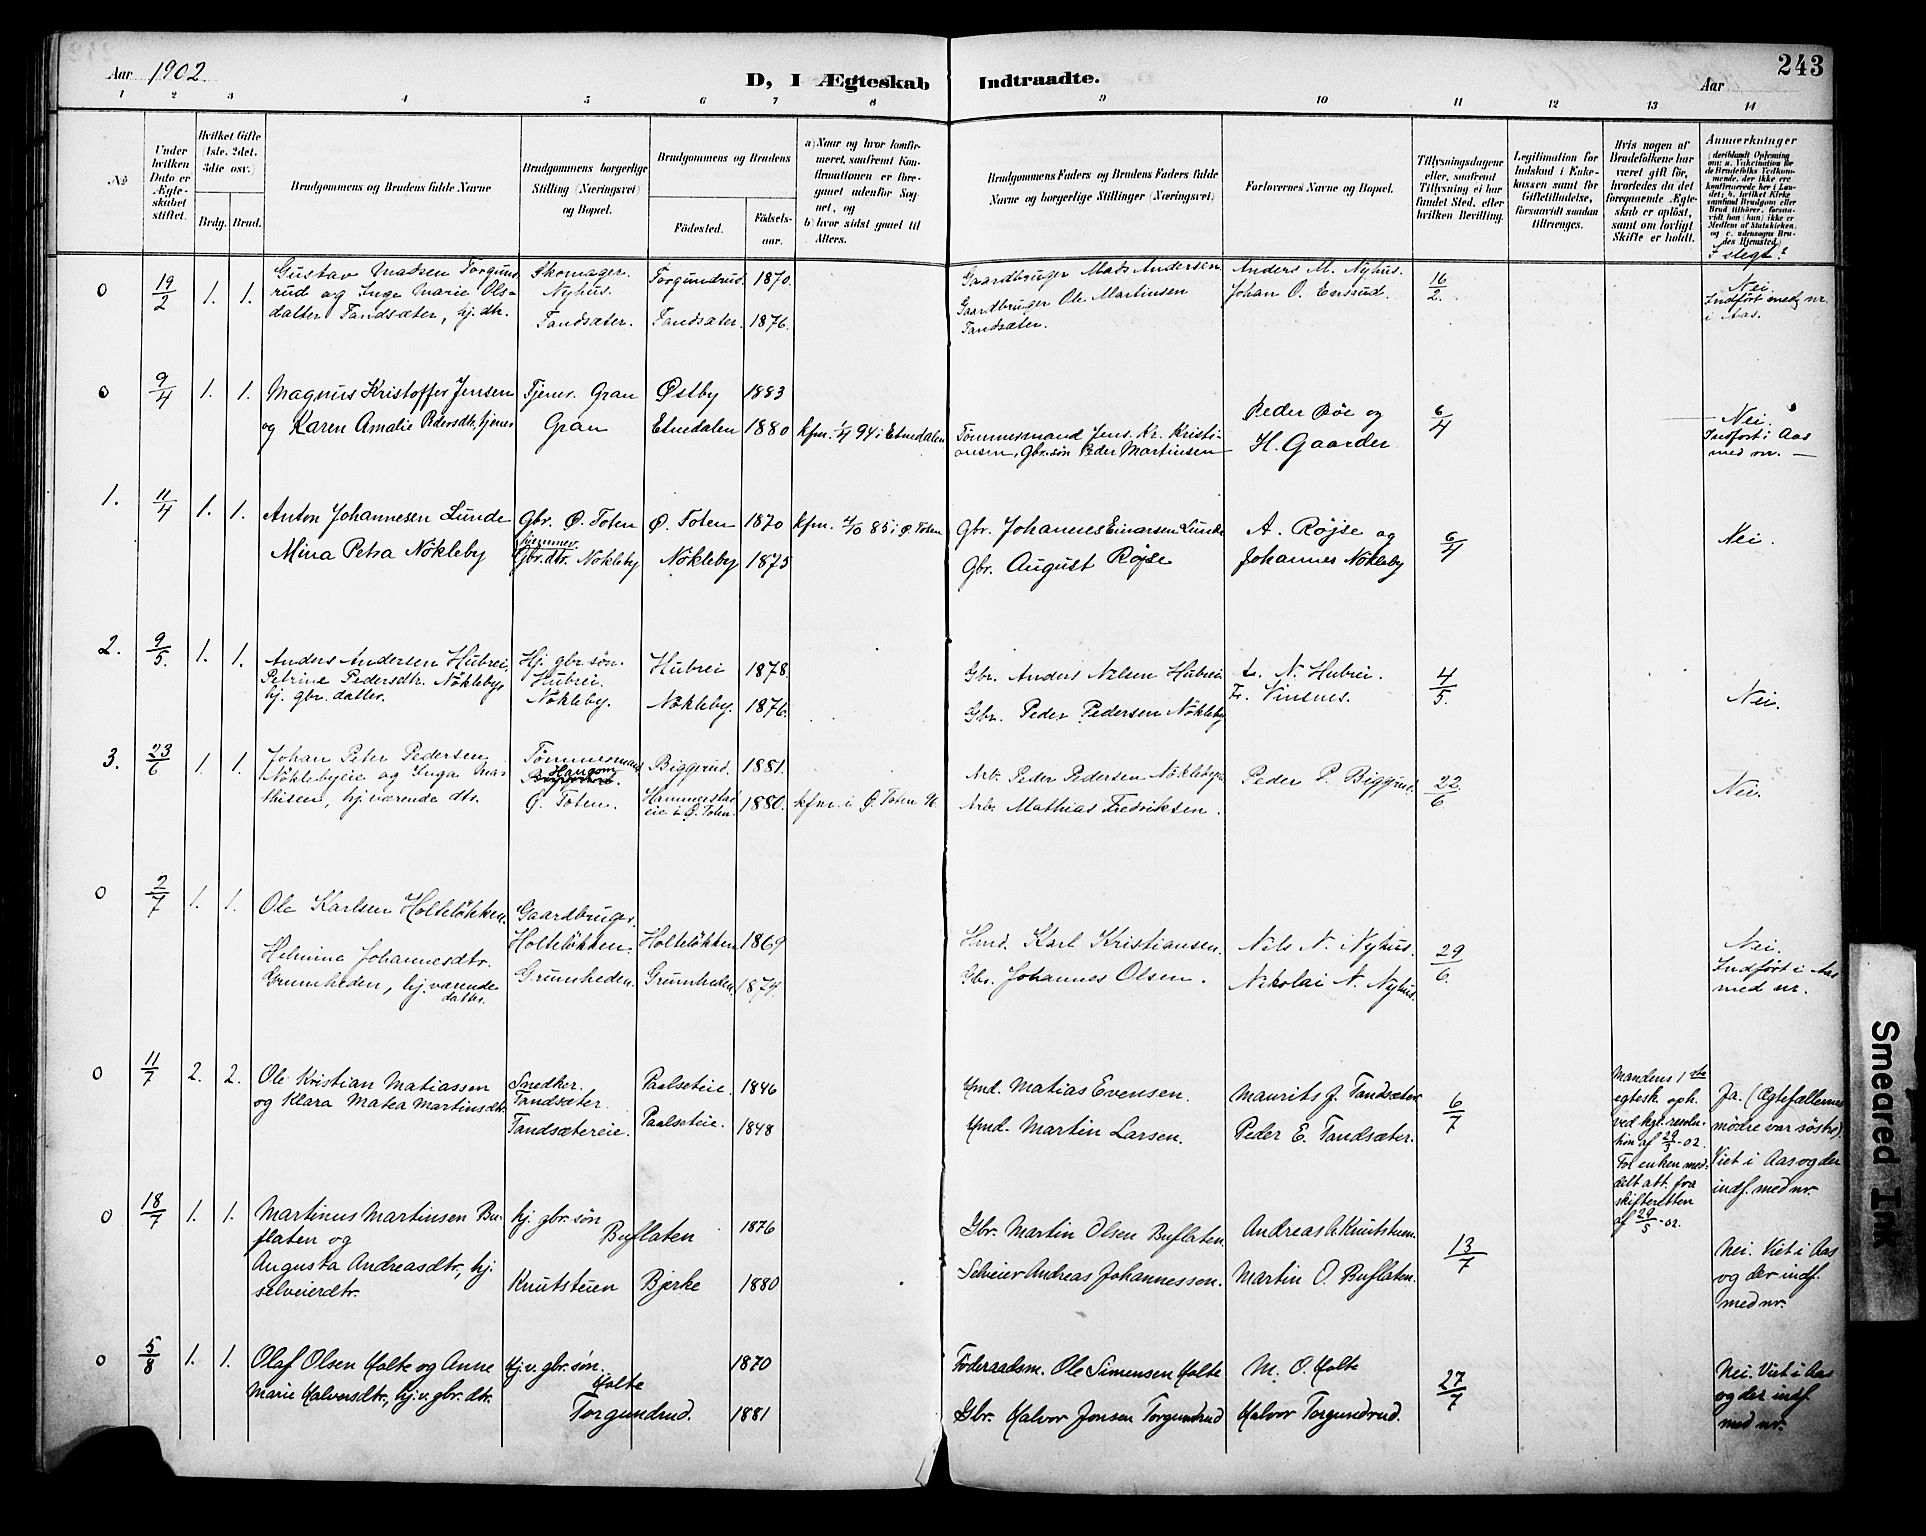 Aar 1902.
D, I Ægteskab Indtraadte.
Aar
243
1 2 3 4 5 6 7 8 9 10 11 12 13 14
No
Under hvilken Dato er Ægteskabet stiftet.
Hvilket Gifte (1ste, 2det, 3die osv.)
Brdg. Brud.
Brudgommens og Brudens fulde Navne
Brudgommens borgerlige Stilling (Næringsvei) og Bopæl.
Brudgommens og Brudens
Fødested.
Fødselsaar.
a) Naar og hvor konfirmeret, saafremt Konfirmationen er foregaaet udenfor Sognet, og
b) hvor sidst gaaet til Alters.
Brudgommens Faders og Brudens Faders fulde Navne og borgerlige Stillinger (Næringsvei)
Forlovernes Navne og Bopæl.
Tillysningsdagene eller, saafremt Tillysning ei har fundet Sted, efter hvilken Bevilling.
Legitimation for Indskud i Enkekassen samt for Giftetilladelse, forsaavidt saadan tiltrænges.
Hvis nogen af Brudefolkene har været gift før, hvorledes da det foregaaende Ægteskab er opløst, samt om lovligt Skifte er holdt.
Anmerkninger
I slegt?
0 19/2 1. 1.
Gustav Madsen Torgunds-
rud og Inga Marie Ols-
datter Tandsæter, hj. dtr.
Skomager.
Nyhus.
Tandsæter.
Torgundrud. 1870.
Tandsæter. 1876.
Gaardbruger Mads Andersen
Gaardbruger Ole Martinsen
Tandsæter.
Anders M. Nyhus.
Johan O. Enstud.
16/2.
Nei.
Indført med nr.
i Aas.
0 9/4 1. 1.
Magnus Kristoffer Jensen
og Karen Amalie Pedersdtr. tjener
Tjener. Gran
Gran
Østby 1883
Etnedalen 1880
kfm. 1/4 94 i Etnedalen
Tømmermand Jens Kr. Kristi-
ansen, Gbr.søn Peder Martinsen
Peder Røe og
H. Gaarder
6/4
Nei.
Indført i Aas
med nr. —
1. 11/4 1. 1.
Anton Johannesen Lunde
Mina Petra Nökleby
Gbr. Ø. Toten
hjemmev.
Gbr.dtr. Nökleby
Ø. Toten 1870
Nökleby 1875
kfm. 4/10 85 i Ø. Toten
Gbr. Johannes Einarsen Lunde
Gbr. August Røjse
A. Røjse og
Johannes Nökleby
6/4
Nei.
2. 9/5. 1. 1.
Anders Andersen Hubrei,
Petrine Pedersdtr. Nökleby,
hj. gbr. datter.
Hj. gbr. søn.
Hubrei.
Nökleby.
Hubrei 1878.
Nökleby. 1876.
Gbr. Anders Nilsen Hubrei
Gbr. Peder Pedersen Nökleby
A. N. Hubrei.
Fr. Vinsnes.
4/5.
Nei.
3. 23/6 1. 1.
Johan Peter Pedersen
Nöklebyeie og Inga Mat-
thisen, hj.værende dtr.
Tömmermand
Haugom
Ø. Toten.
Biggerud. 1881.
Hammerstad
eie i Ø. Toten. 1880.
kfm. i Ø. Toten 96
Arb. Peder Pedersen Nöklebye.
Arb. Mathias Fredriksen.
Peder P. Biggerud.
22/6.
Nei.
0 2/7 1. 1.
Ole Karlsen Holtelökken.
Helmine Johannesdtr.
Grumheden, hj.værende
datter.
Gaardbruger.
Holtelökken.
Grumheden.
Holtelökken 1869
Grumheden. 1874.
Hmd. Karl Kristiansen.
Gbr. Johannes Olsen.
Nils N. Nyhus.
Nikolai N. Nyhus.
29/6.
Nei.
Indført i Aas
med nr.
0 11/7 2. 2.
Ole Kristian Matiassen
og Klara Matea Martinsdtr.
Snedker.
Tandsæter.
Tandsætereie.
Paalseteie 1846
Paalseteie. 1848
Hmd. Matias Evensen.
Hmd. Martin Larsen.
Maurits J. Tandsæter
Peder E. Tandsæter.
6/7
Mandens 1ste
egtesk. oph.
ved kgl. resolu-
tion af 29/3-02.
For enken med-
delt att. fra
skifteretten
af 29/5-02.
Ja. (Ægtefællernes
mödre var söstre).
Viet i Aas og der
indf. med nr.
0 18/7 1. 1.
Martinus Martinsen Bu-
flaten og
Augusta Andreasdtr., hj.
selveierdtr.
hj. gbr. søn
Buflaten
Knutstuen
1876
Bjerke 1880
Gbr. Martin Olsen Buflaten.
Selveier Andreas Johannessen.
Andreas A. Knutstuen.
Martin O. Buflaten.
13/7
Nei. Viet i Aas
og der indf.
med nr.
0 5/8 1. 1.
Olaf Olsen Holte og Anne
Marie Halvorsdtr., hj.v. gbr. dtr.
Hj.v. gbr. søn.
Holte
Torgundrud.
1870
1881
Föderaadsm. Ole Simensen Holte
Gbr. Halvor Jonsen Torgundrud
M. O. Holte
Halvor Torgundrud.
27/7
Nei. Viet i Aas
og der indf.
med nr.
Smeared Ink